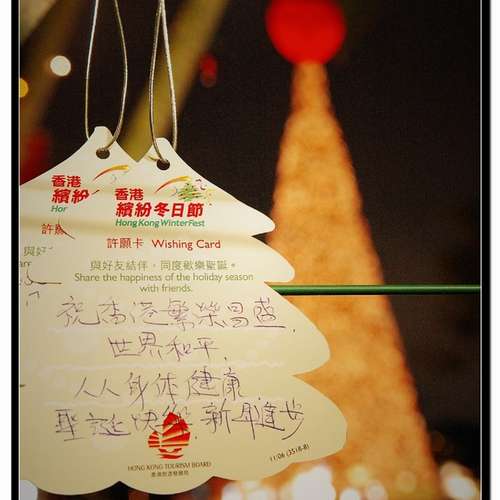 香港
繽紛
Hon
許願
與好
香港
繽紛冬日節
Hong Kong WinterFest
許願卡 Wishing Card
與好友結伴，同度歡樂聖誕。
Share the happiness of the holiday season
with friends.
祝香港繁榮昌盛,
世界和平,
人人身体健康,
聖誕快樂, 新年進步
HONG KONG TOURISM BOARD
香港旅遊發展局
11/06 (3518-8)